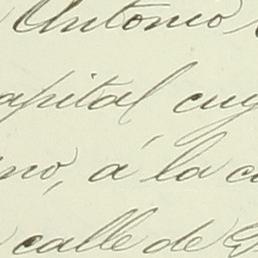 Antonio
apital cuy
no, á la ca
calle de G